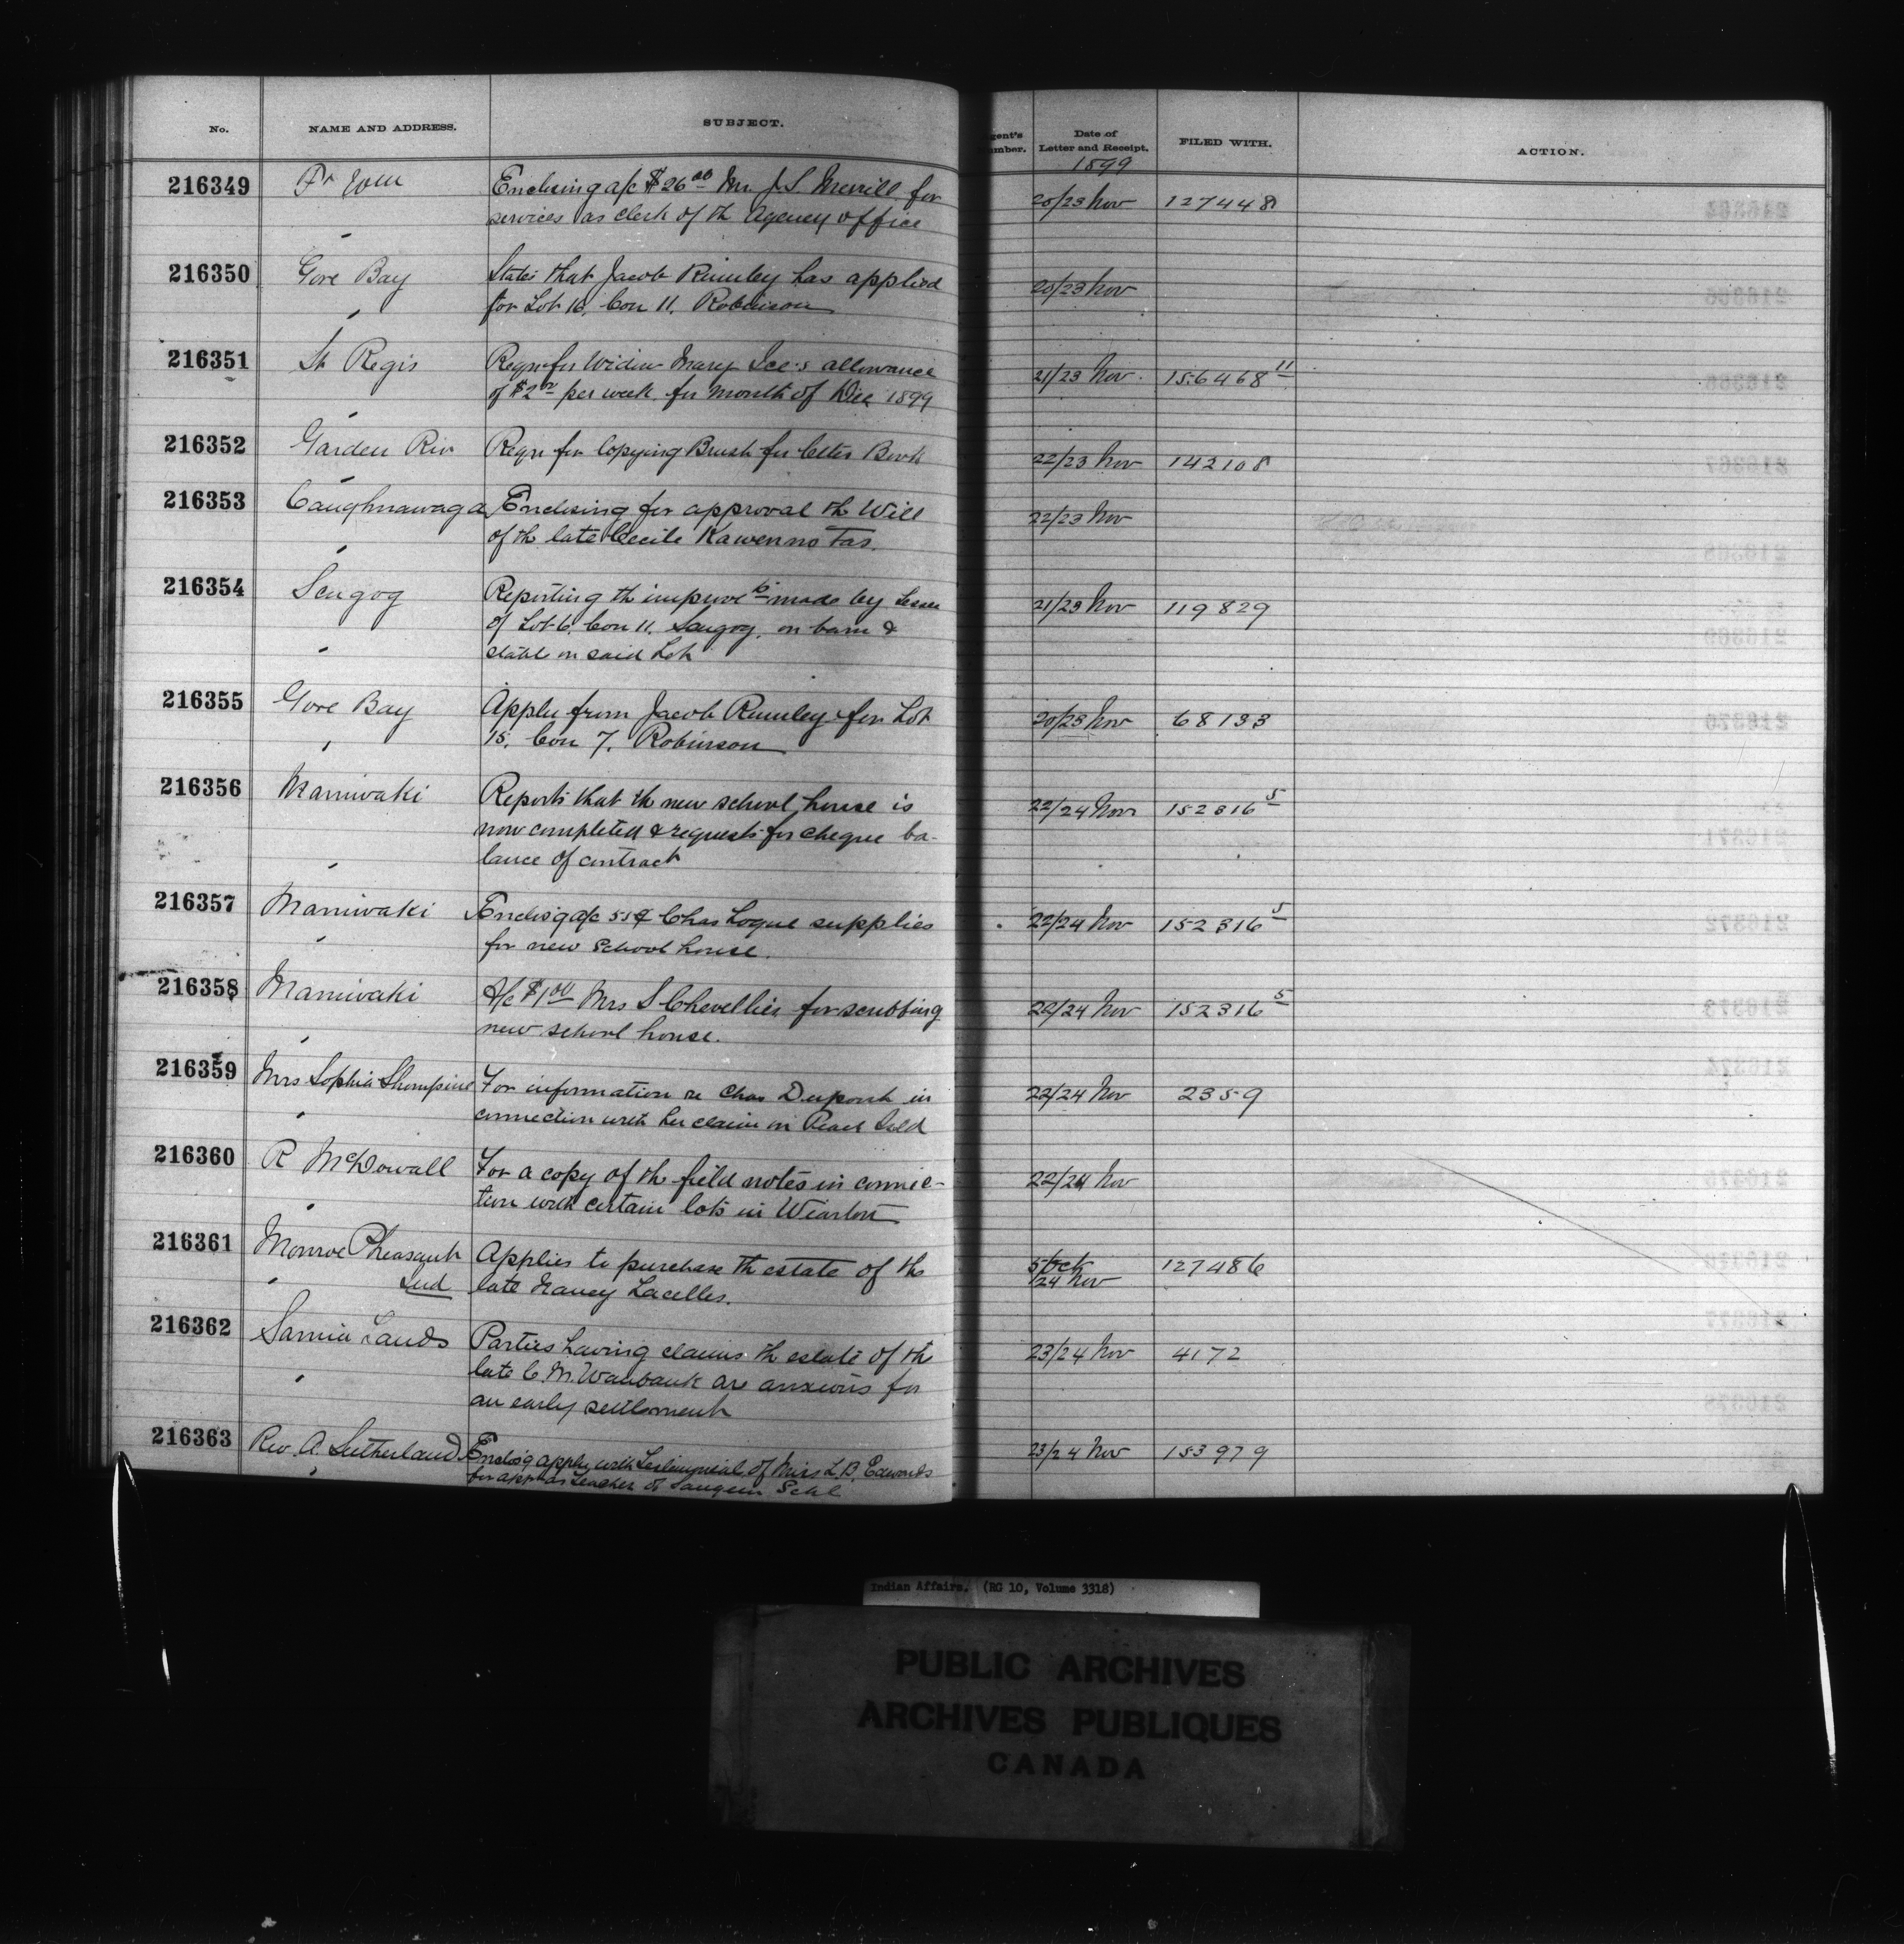 No.
NAME AND ADDRESS.
SUBJECT.
Agent's
Number.
Date of
Letter and Receipt.
FILED WITH.
ACTION.
1899
216349 Ft Wm Enclosing a/c $26.00 Mr. J. S. Merrill, for 20/23 Nov 127448
services as clerk of th Agency office
216350 Gore Bay States that Jacob Rumley has applied 20/23 Nov
for Lot 16, Con 11, Robinson
216351 St Regis Reqn for Widow Mary Ice's allowance 21/23 Nov. 156468 11
of $2.00 per week, for month of Dec 1899
216352 Garden Riv Reqn for Copying Brush for letter Book 22/23 Nov 142108
216353 Caughnawaga Enclosing for approval th Will 22/23 Nov
of th late Cecile Kawenno Tas.
216354 Scugog Reporting th improve ts made by Lessee 21/23 Nov 119829
of Lot 6, Con 11, Scugog, on barn &
stable on said Lot
216355 Gore Bay Appln from Jacob Rumley for Lot 20/23 Nov 68133
15, Con 7, Robinson
216356 Maniwaki Reports that th new school house is 22/24 Nov 152316 5
now completed & requests for cheque ba-
lance of contract
216357 Maniwaki Enclos'g a/c 55¢ Chas Logue supplies 22/24 Nov 152316 5
for new School house.
216358 Maniwaki A/c $1.00 Mrs S Chevellier for scrubbing 22/24 Nov 152316 5
new school house.
216359 Mrs Sophia Shompine For information re Chas Dupont in 22/24 Nov 2359
connection with her claim on
216360 R McDowall For a copy of th field notes in connec- 22/24 Nov
tion with certain lots in Wiarton
216361 Monroe Pheasant Applies to purchase th estate of the 5 Oct 127486
Ind late Nancy Lacelles. /24 Nov
216362 Sarnia Lands Parties having claims th estate of th 23/24 Nov 4172
late C. M. Wawbank are anxious for
an early settlement
216363 Rev. A. Sutherland Enclos'g appln with testimonial of Miss L. B. Edwards 23/24 Nov 153979
for appt as teacher of Saugeen Schl
Indian Affairs. (RG 10, Volume 3318)
PUBLIC ARCHIVES
ARCHIVES PUBLIQUES
CANADA